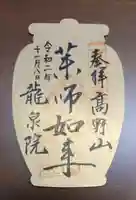 奉拝高野山
薬师如来
令和二年
十一月八日
龍泉院